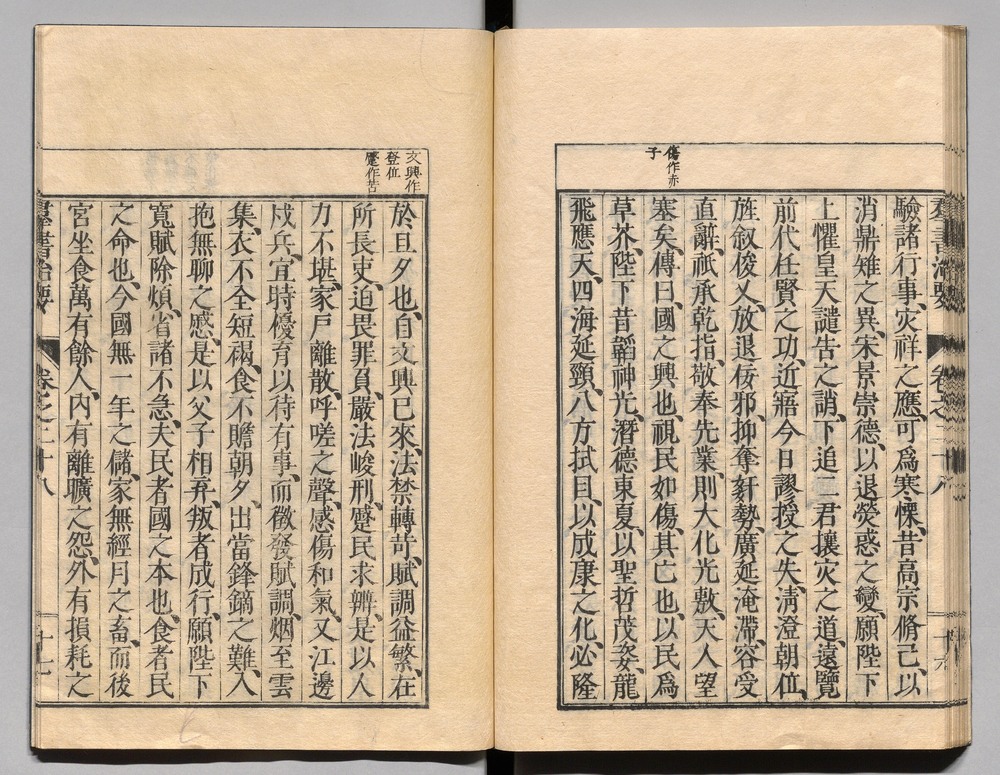 傷作赤
子
驗諸行事、災祥之應、可爲寒慄、昔高宗脩己、以
消鼎雉之異、宋景崇德、以退熒惑之變、願陛下
上懼皇天譴告之誚、下追二君攘灾之道、遠覽
前代任賢之功、近寤今日謬授之失、淸澄朝位、
旌叙俊乂、放退佞邪、抑奪姧勢、廣延淹滯、容受
直辭、祇承乾指、敬奉先業、則大化光敷、天人望
塞矣、傳曰、國之興也、視民如傷、其亡也、以民爲
草芥、陛下昔韜神光、潛德東夏、以聖哲茂姿、龍
飛應天、四海延頸、八方拭目、以成康之化、必隆
群書治要
卷之二十八
十六
文興作
登位
蹙作苦
於旦夕也、自文興已來、法禁轉苛、賦調益繁、在
所長吏、迫畏罪負、嚴法峻刑、蹙民求辨、是以人
力不堪、家戶離散、呼嗟之聲、感傷和氣、又江邊
戍兵、宜時優育以待有事、而徵發賦調、烟至雲
集、衣不全短褐、食不贍朝夕、出當鋒鏑之難、入
抱無聊之慼、是以父子相弃、叛者成行、願陛下
寬賦除煩、省諸不急、夫民者國之本也、食者民
之命也、今國無一年之儲、家無經月之畜、而後
宮坐食萬有餘人、內有離曠之怨、外有損耗之
群書治要
卷之二十八
十七